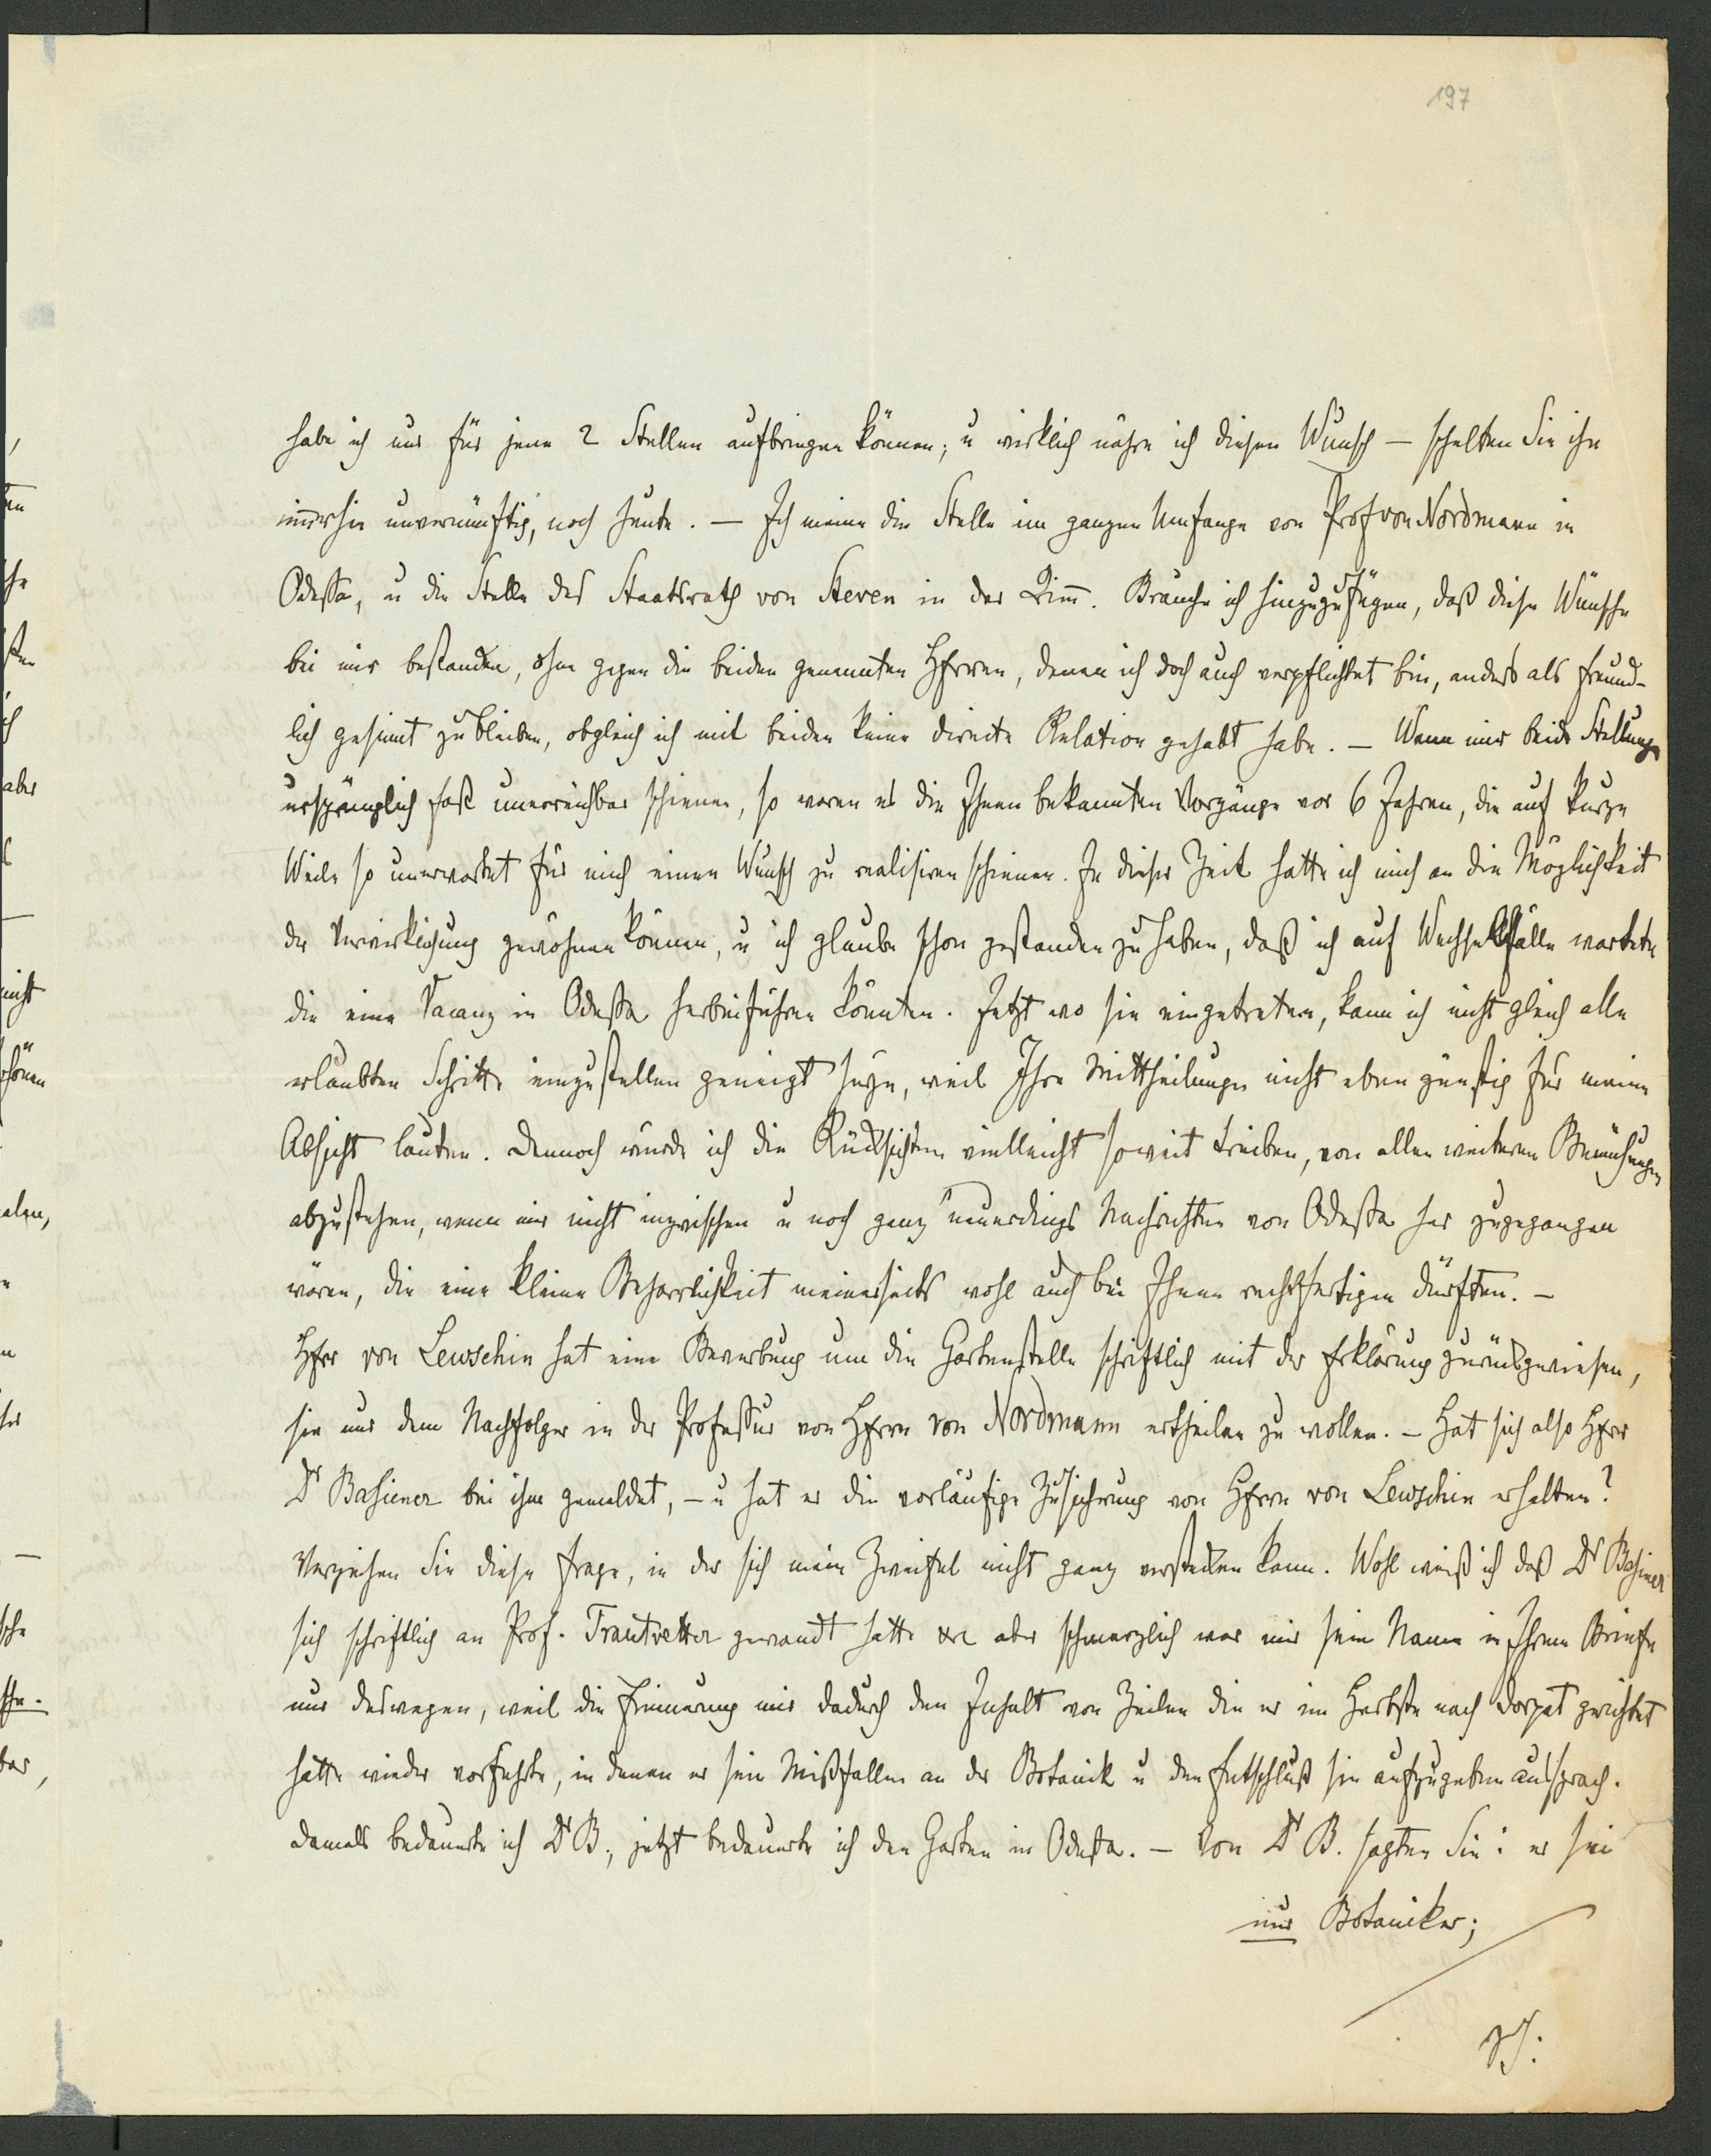 197
habe ich nur für jene 2 Stellen aufbringen können; u wirklich nähre ich diesen Wunsch — schelten Sie ihn
immerhin unvernünftig, noch heute. — Ich meine die Stelle im ganzen Umfange von Prof von Nordmann in
Odessa, u die Stelle des Staatsrath von Steven in der Krim. Brauche ich hinzuzufügen, daß diese Wünsche
bei mir bestanden, ohne gegen die beiden genannten Herren, denen ich doch auch verpflichtet bin, anders als freund-
lich gesinnt zu bleiben, obgleich ich mit beiden keine directe Relation gehabt habe. — Wenn mir beide Stellungen
ursprünglich fast unerreichbar schienen, so waren es die Ihnen bekannten Vorgänge vor 6 Jahren, die auf kurze
Weile so unerwartet für mich einen Wunsch zu realisiren schienen. In dieser Zeit hatte ich mich an die Möglichkeit
der Verwirklichung gewöhnen können, u ich glaube schon gestanden zu haben, daß ich auf Wechselfälle wartete
die eine Vacanz in Odessa herbeiführen könnten. Jetzt wo sie eingetreten, kann ich nicht gleich alle
erlaubten Schritte einzustellen geneigt seyn, weil Ihre Mittheilungen nicht eben günstig für meine
Absicht lauten. Dennoch würde ich die Rücksichten vielleicht soweit treiben, von allen weiteren Bemühungen
abzustehen, wenn mir nicht inzwischen u noch ganz neuerdings Nachrichten von Odessa her zugegangen
wären, die eine kleine Beharrlichkeit meinerseits wohl auch bei Ihnen rechtfertigen dürften. —
Herr von Lewschin hat eine Bewerbung um die Gartenstelle schriftlich mit der Erklärung zurückgewiesen,
sie nur dem Nachfolger in der Professur von Herrn von Nordmann ertheilen zu wollen. — Hat sich also Herr
Dr Basiener bei ihm gemeldet, — u hat er die vorläufige Zusicherung von Herrn von Lewschin erhalten?
Verzeihen Sie diese Frage, in der sich mein Zweifel nicht ganz verstecken kann. Wohl weiß ich daß Dr Basiner
sich schriftlich an Prof. Trautvetter gewandt hatte aber schmerzlich war mir sein Name in Ihrem Briefe
nur deswegen, weil die Erinnerung mir dadurch den Inhalt von Zeilen die er im Herbste nach Dorpat gerichtet
hatte wieder vorführte, in denen er sein Mißfallen an der Botanik u den Entschluß sie aufzugeben aussprach.
Damals bedauerte ich Dr B., jetzt bedauerte ich den Garten in Odessa. — Von Dr B. sagten Sie: er sei
nur Botaniker;